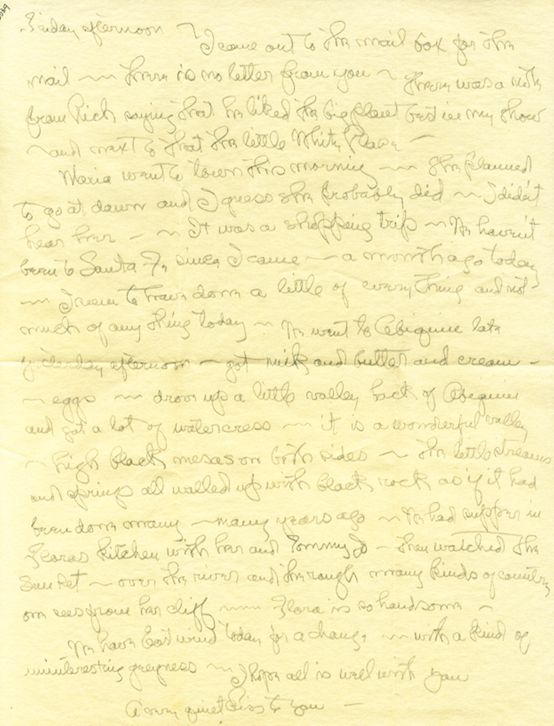 Friday afternoon ~
I came out to the mail box for the
mail ~~ there is no letter from you ~ there was a note
from Rich saying that he liked the big plant best in my show
~ and next to that the little White Place ~
Maria went to town this morning ~~ She planned
to go at dawn and I guess she probably did ~ I didn't
hear her ~ ~ It was a shopping trip ~ We haven't
been to Santa Fe since I came ~ a month ago today
~~ I seem to have done a little of everything and not
much of any thing today ~ We went to Abiquiu late
yesterday afternoon ~ got milk and butter and cream ~
~ eggs ~~ drove up a little valley back of Abiquiu
and got a lot of watercress ~~ it is a wonderful valley
~ high black mesas on both sides ~ the little streams
and springs all walled up with black rock as if it had
been done many ~ many years ago ~ We had supper in
Floras kitchen with her and Tommy Jo ~ then watched the
sun set ~ over the river and the rough many kinds of country
one sees from her cliff ~~~ Flora is so handsome ~
We have East wind today for a change ~~ with a kind of
uninteresting greyness ~ I hope all is well with you
A very quiet kiss to you ~